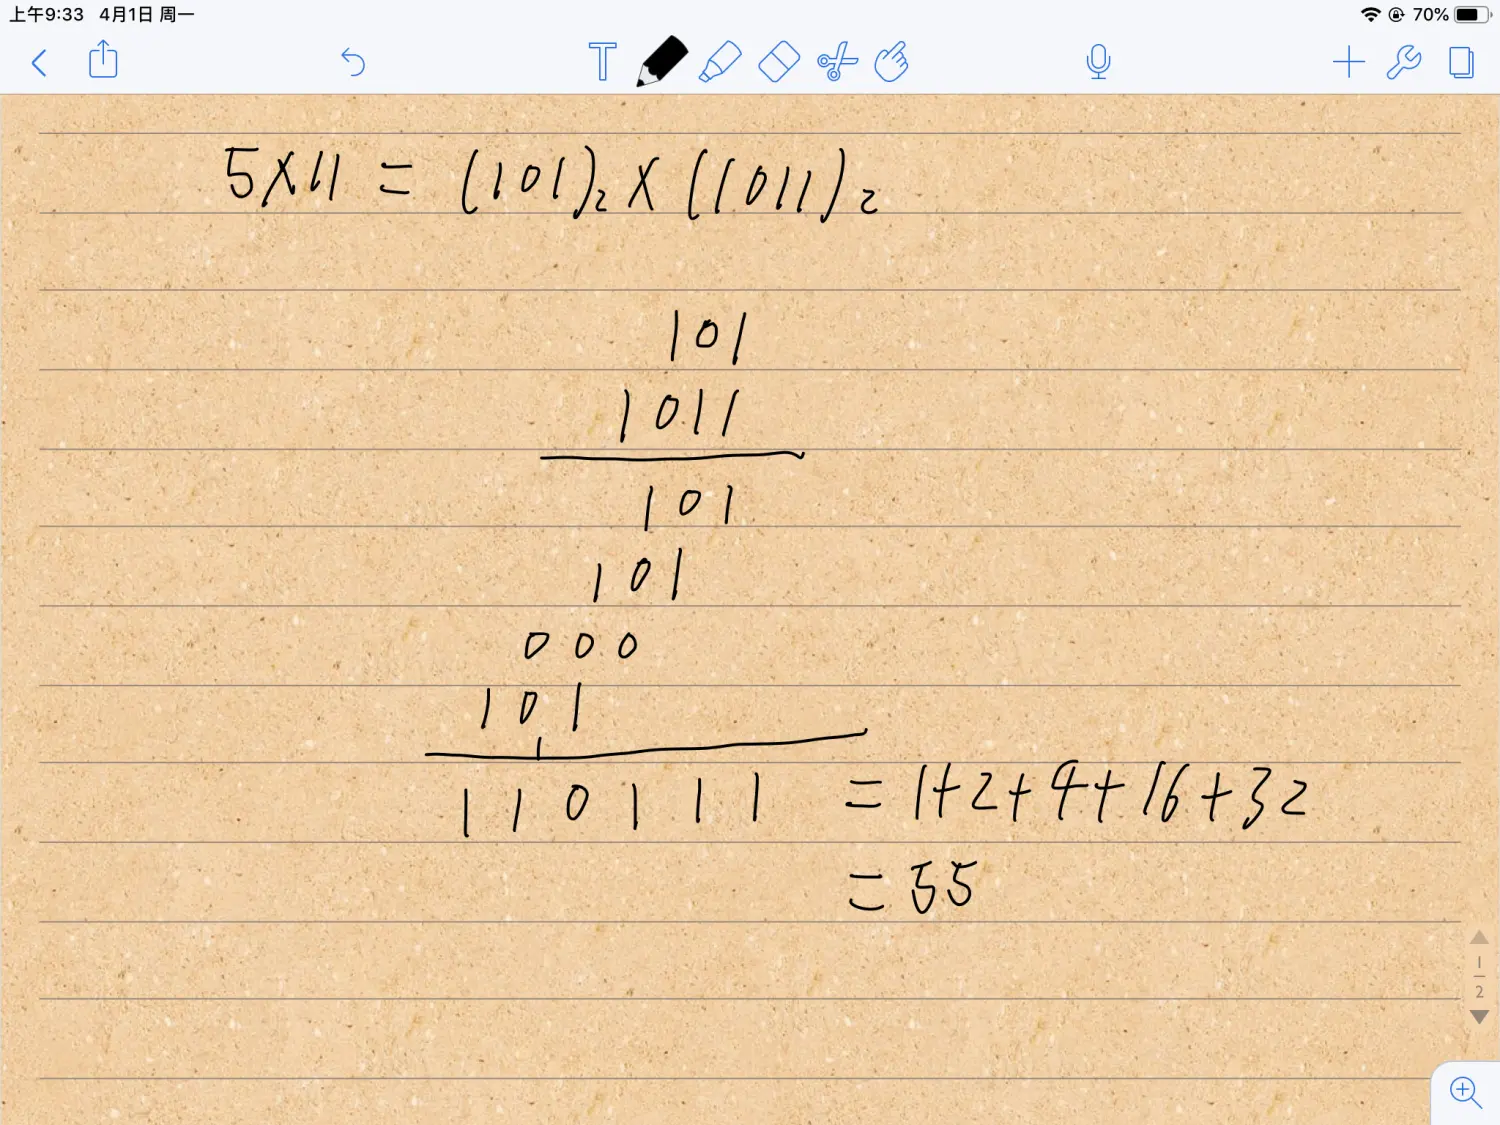 上午9:33 4月1日 周一 70%
T
5×11 = (101)₂ × (1011)₂
101
1011
101
101
000
101
1
110111 = 1+2+4+16+32
= 55
1
2